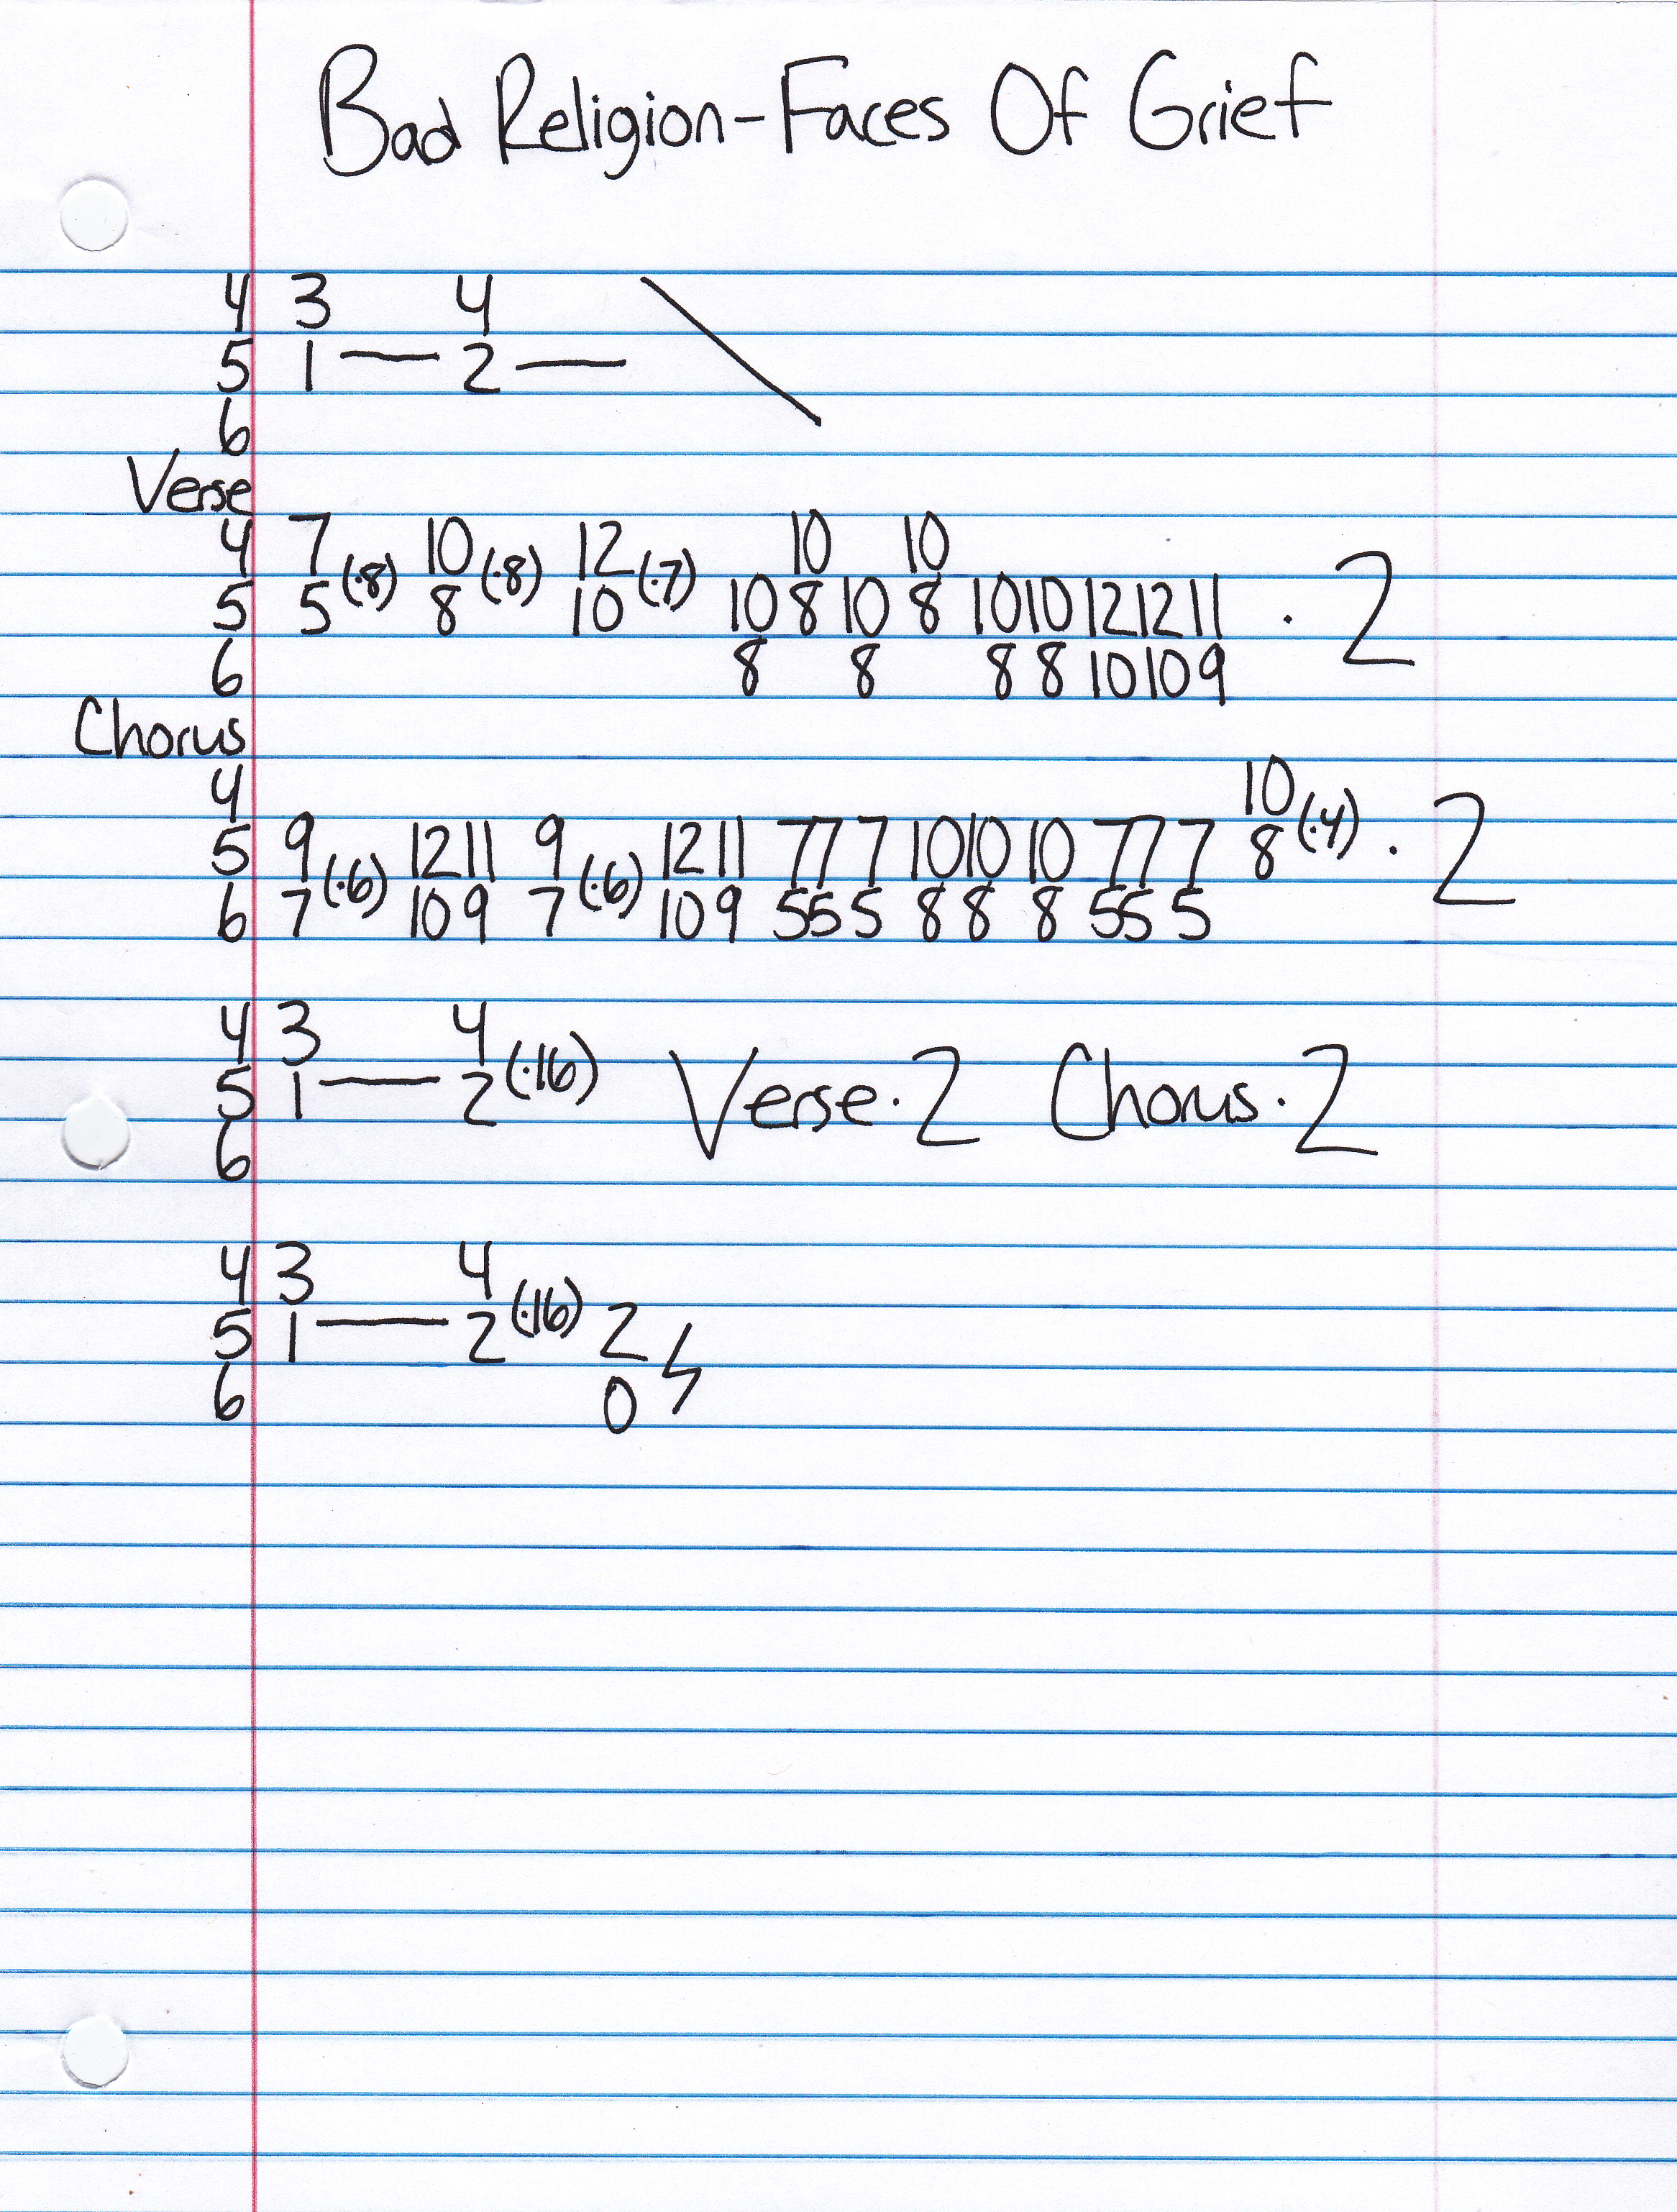 Bad Religion-Faces Of Grief
4 3 4
5 1 — 2 — \
6
Verse
4 7 10 12 10 10
5 5 (·8) 8 (·8) 10 (·7) 10 8 10 8 10 10 12 12 11 · 2
6 8 8 8 8 10 10 9
Chorus
4 10
5 9 (·6) 12 11 9 (·6) 12 11 7 7 7 10 10 10 7 7 7 8 (·4) · 2
6 7 10 9 7 10 9 5 5 5 8 8 8 5 5 5
4 3 4
5 1 — 2 (·16) Verse · 2 Chorus · 2
6
4 3 4
5 1 — 2 (·16) 2
6 0